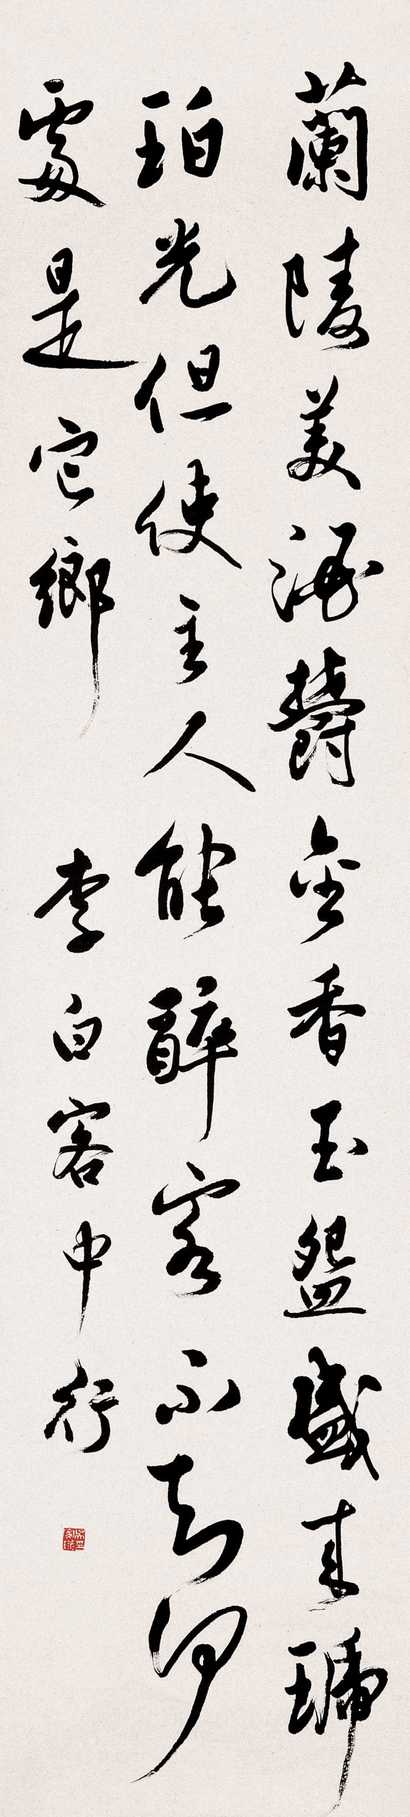 蘭陵美酒鬱金香玉盌盛來琥
珀光但使主人能醉客不知何
處是它鄉 李白客中行